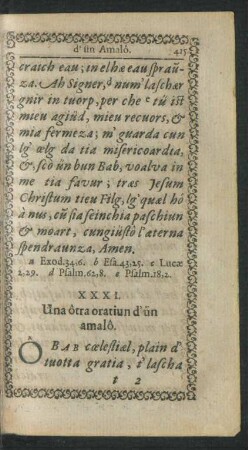 d'ün Amalô. 415
craich eau; in elhæ eau spraũ-
za. Ah Signer, d num' laschær
gnir in tuorp, per che e tü ist
mieu agiüd, mieu recuors, &
mia fermeza; m' guarda cun
lg' œlg da tia misericoardia,
&, scò ün bun Bab, voalva in
me tia favur; træs Jesum
Christum tieu Filg, lg' quæl hó
à nus, cũ sia seinchia paschiun
& moart, cungiüstô l'æterna
spendraunza, Amen.
a Exod.34.6. b Esa.43.25. c Lucæ
2.29. d Psalm.62.8. e Psalm.18.2.
XXXI.
Una ôtra oratiun d'ün
amalô.
O BAB cœlestiæl, plain d'
tuotta gratia, i' lascha
t 2